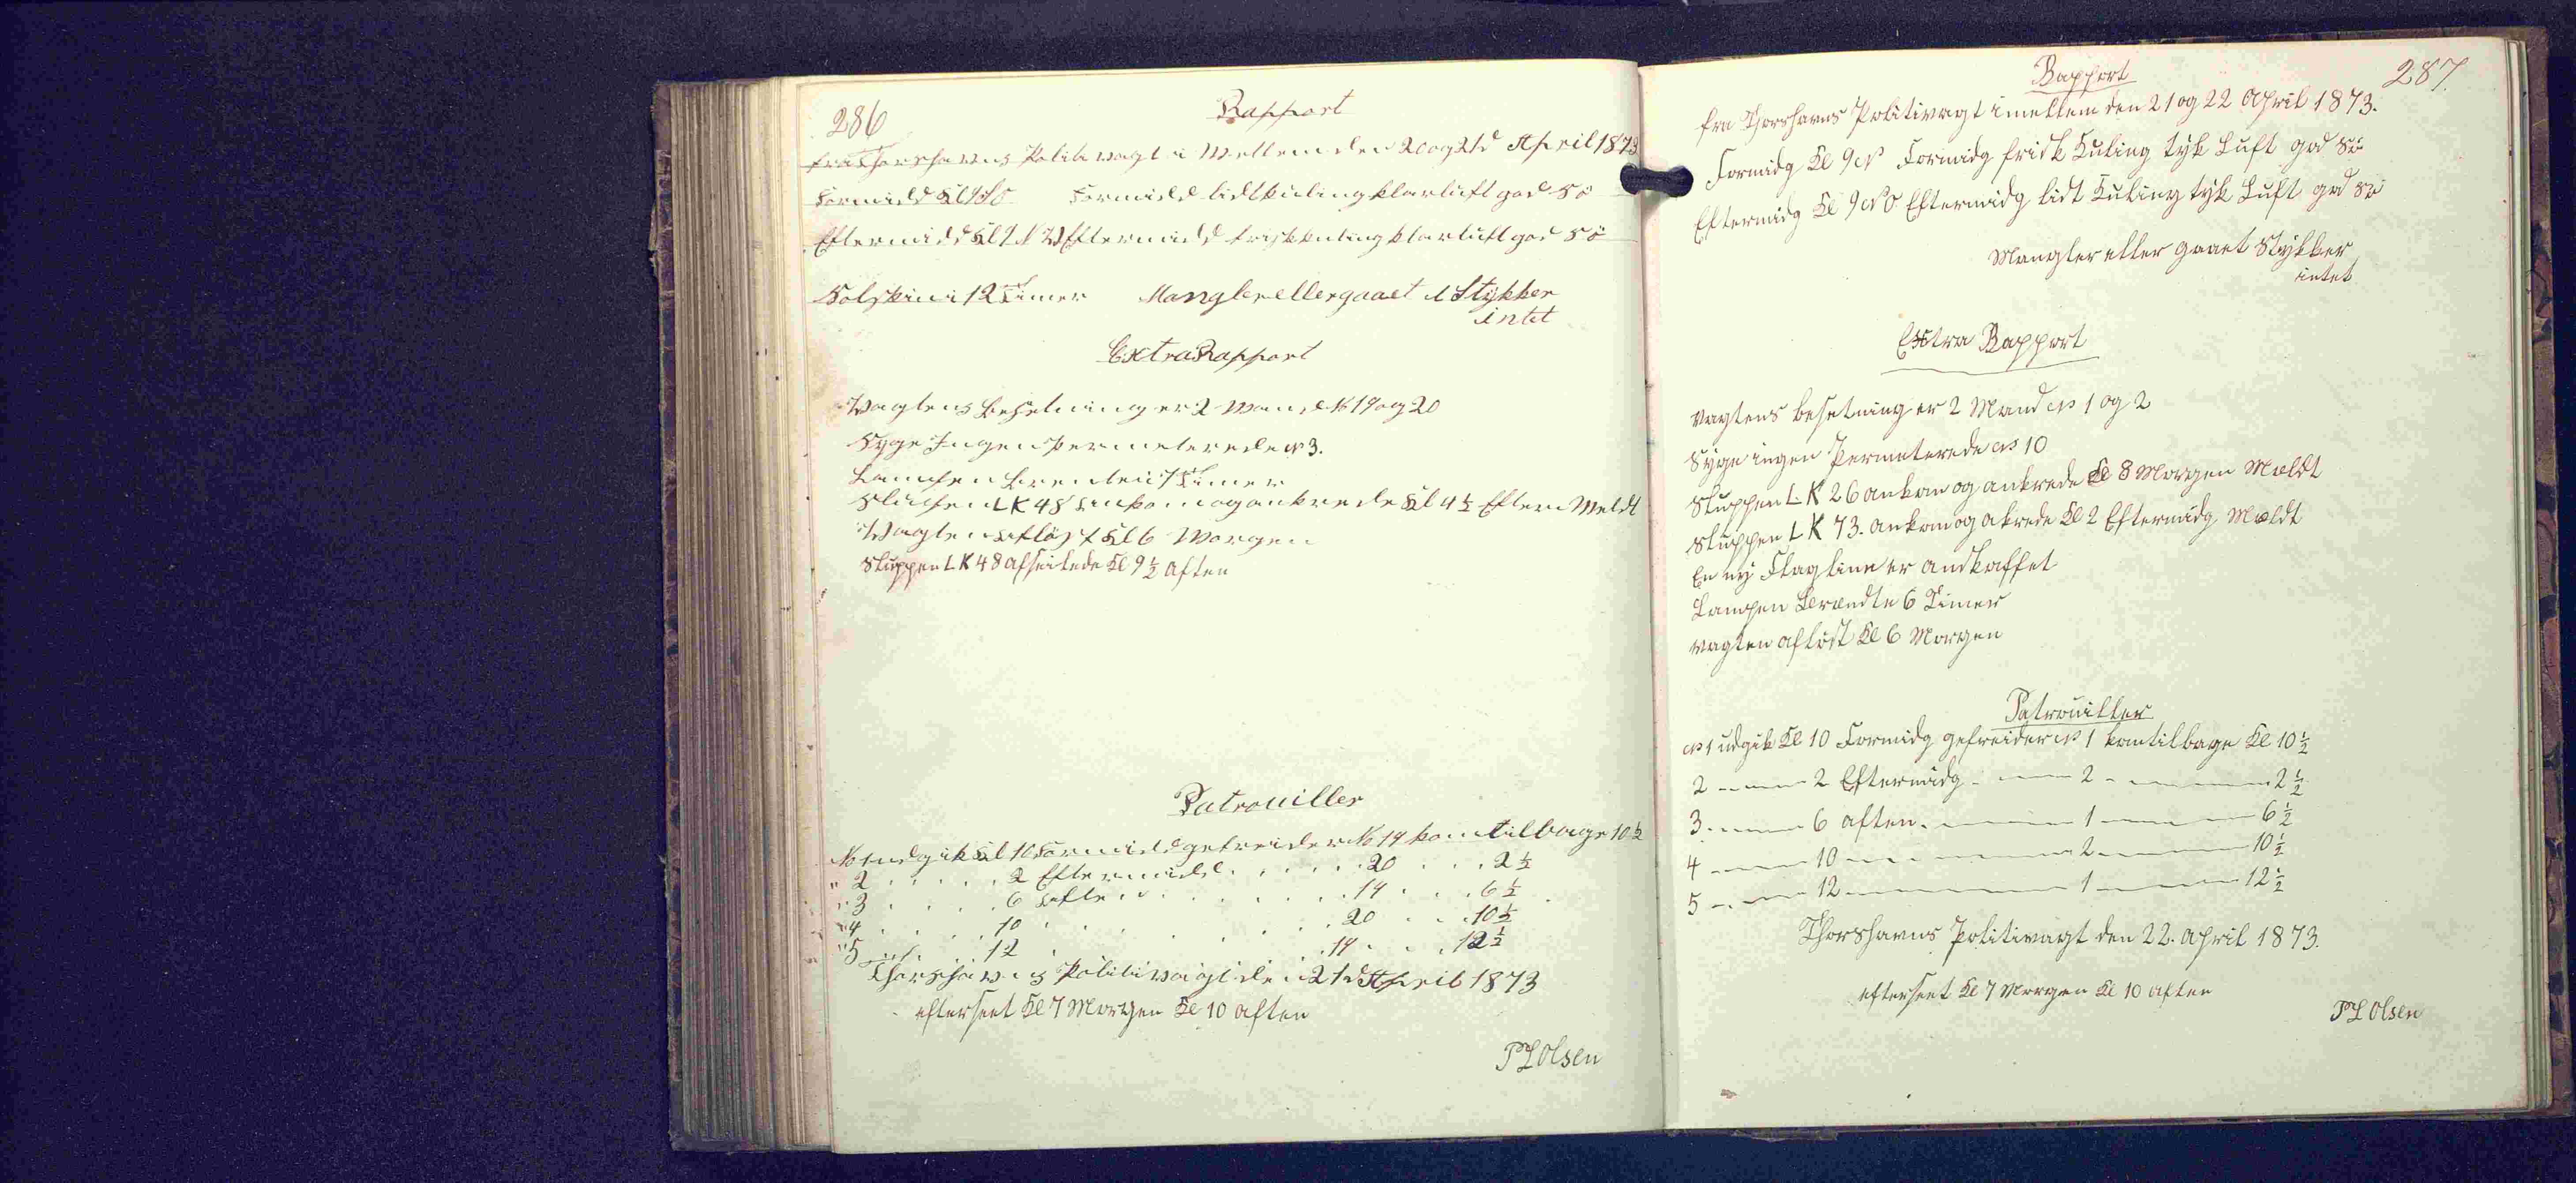 286
Rapport
fra Thorshavns Politivagt i Mellem den 20 og 21d April 1873
Formidd Kl 9 Formidd lidt kuling klarluft god Sö
Eftermidd Kl Eftermidd frisk kuling klarluft god Sö
Solskin i 12 Timer Mangler eller gaaet i Stykker
intet
Extra Rapport
Vagtens Besetning er 2 Mand No 19 og 20
Syge Ingen Permeterede No 3.
Lampen Brendte i 7 Timer
Sluppen LK 48 Ankom og ankrede Kl 4 1/2 Efterm Meldt
Vagten Aflöst Kl 6 Morgen
Sluppen LK 48 afseilede Kl 9 1/2 aften
Patrouiller
No 1 udgik Kl 10 Formidd gefreider No 19 kom tilbage 10 1/2
" 2 . . . . . 2 Eftermidd . . . . . 20 . . . 2 1/2
" 3 . . . . . 6 Aften . . . . . . . 19 . . . 6 1/2
" 4 . . . . . 10 . . . . . . . 20 . . . 10 1/2
" 5 . . . 12 . . . . . . . 19 . . . 12 1/2
Thorshavns Politivagt den 21d April 1873
efterseet Kl 7 Morgen Kl 10 aften
PL Olsen
287.
Rapport
fra Thorshavns Politivagt imellem den 21 og 22 April 1873.
Formidg Kl 9 N Formidg frisk Kuling tyk Luft god Sö
Eftermidg Kl 9 N O Eftermidg lidt Kuling tyk Luft god Sö
Mangler eller gaaet Stykker
intet
Extra Rapport
Vagtens besetning er 2 Mand No 1 og 2
Syge ingen Permeterede No 10
Sluppen L K 26 ankom og ankrede Kl 8 Morgen Mældt
Sluppen L K 73. ankom og akrede Kl 2 Eftermidg Mældt
En ny Flagline er anskaffet
Lampen Brændte 6 Timer
vagten aflöst Kl 6 Morgen
Patrouiller
No 1 udgik Kl 10 Formidg gefreider No 1 kom tilbage Kl 10 1/2
2 - - - - 2 Eftermidg - - - 2 - - - - 2 1/2
3. - - - - 6 aften. - - - - 1 - - - - 6 1/2
4 - - - - 10 - - - - - - - 2 - - - - 10 1/2
5 - - - - 12 - - - - - - - 1 - - - - 12 1/2
Thorshavns Politivagt den 22. April 1873.
efterseet Kl 7 Morgen Kl 10 aften
PL Olsen